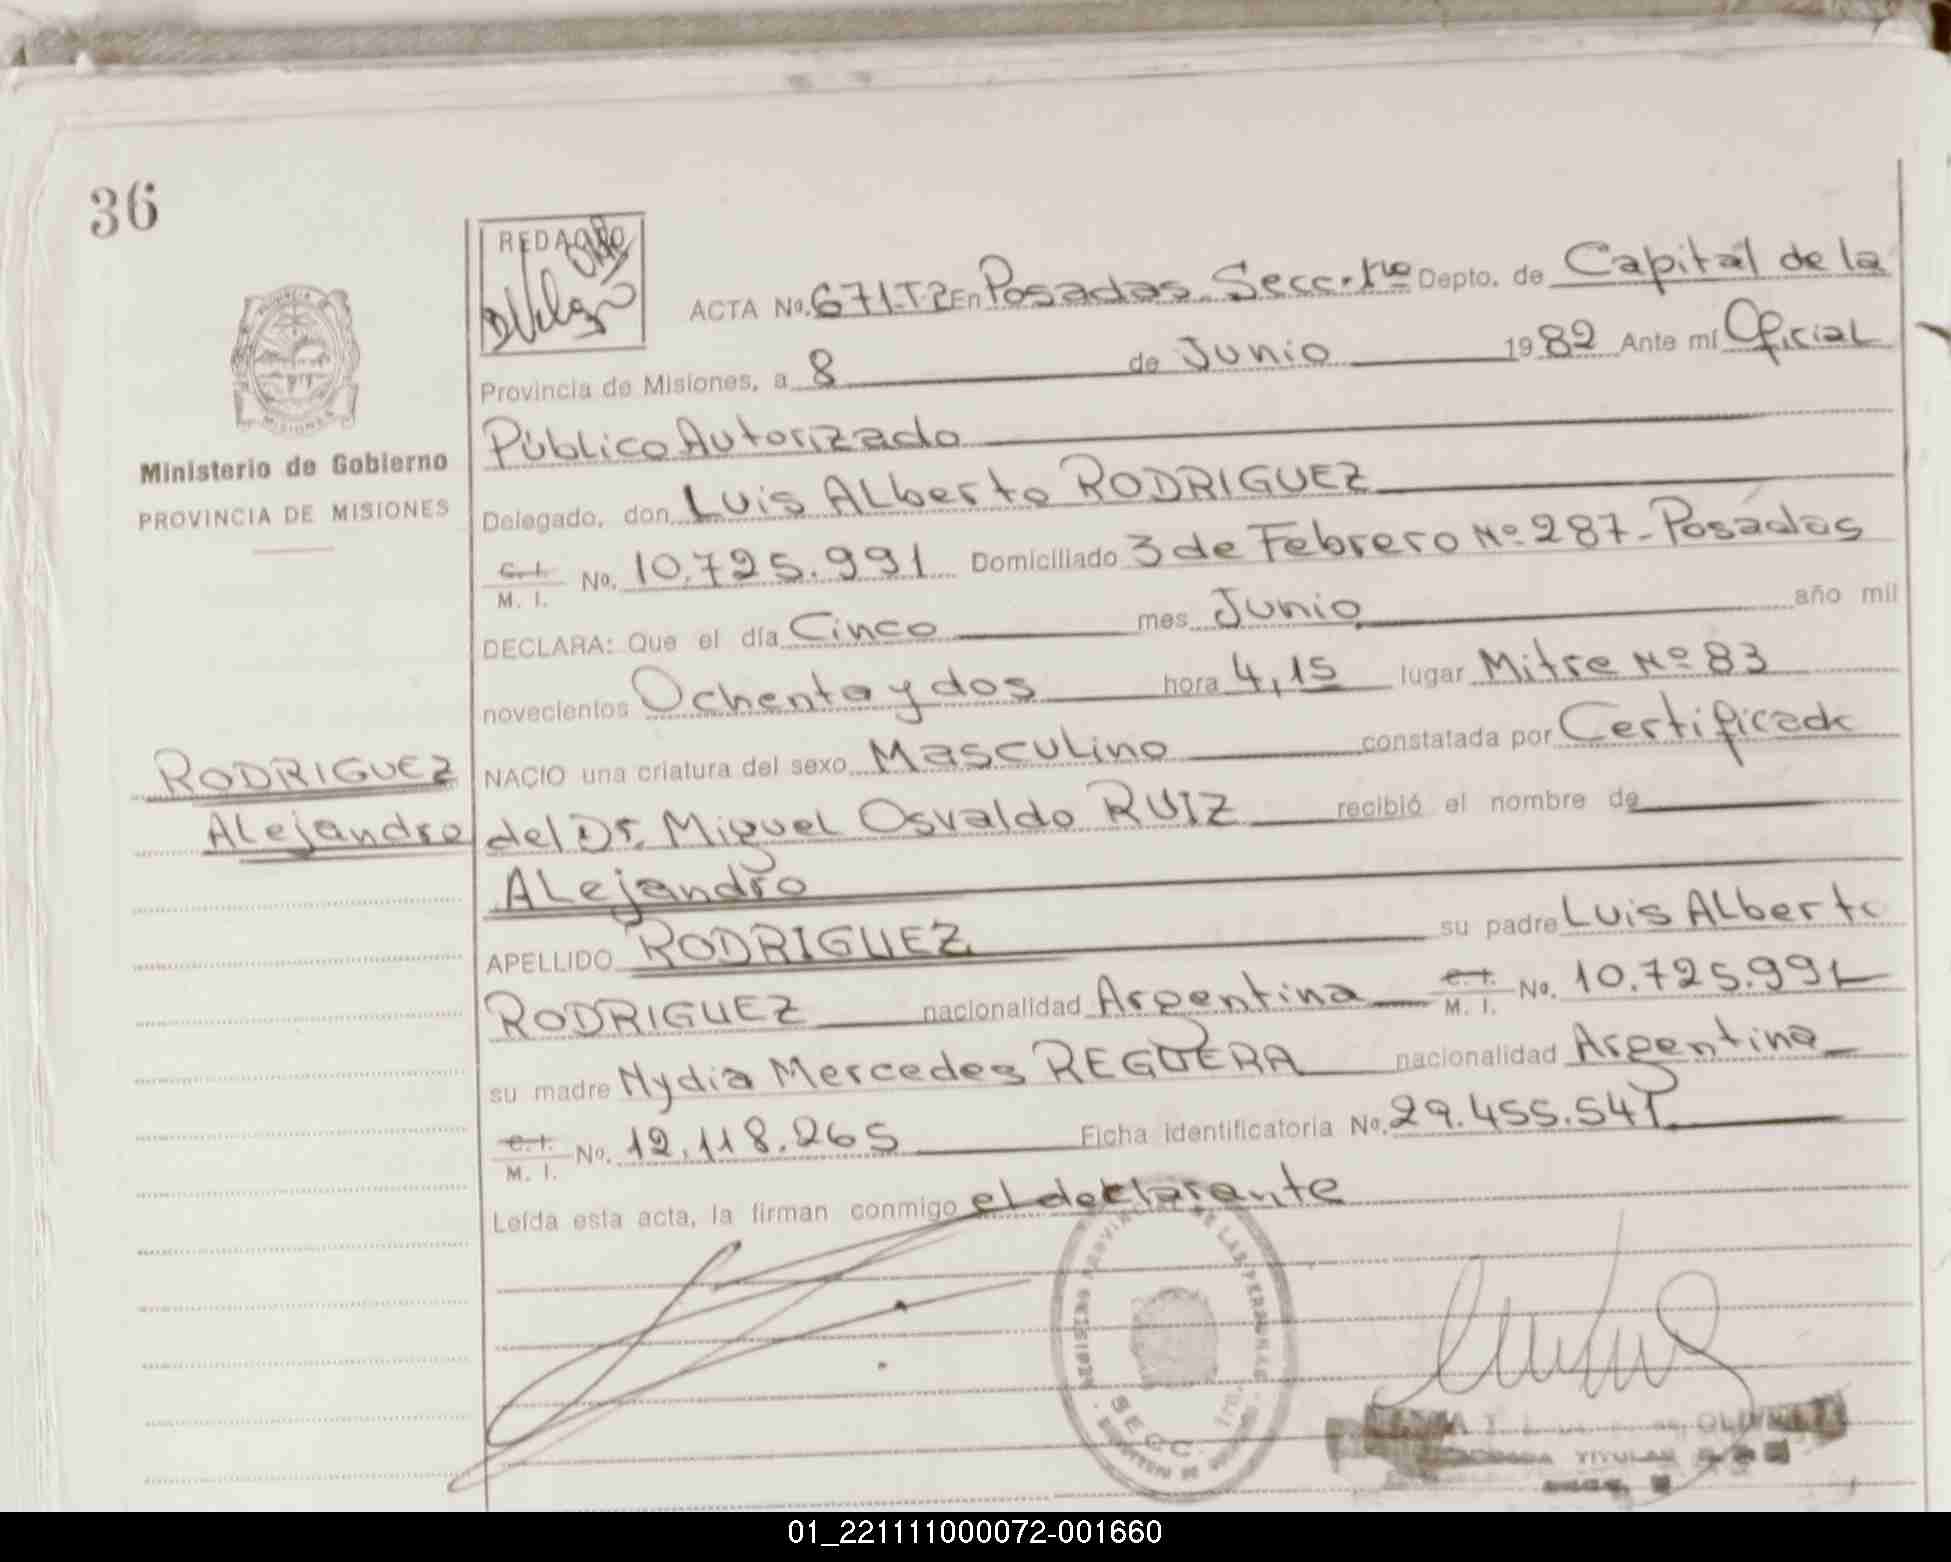 36
REDACTO
ACTA No. 671.T-2 En Posadas. Secc. 1ra Depto. de Capital de la
Provincia de Misiones, a 8 de Junio 1982 Ante mí Oficial
Público Autorizado
Ministerio de Gobierno
PROVINCIA DE MISIONES
Delegado, don Luis Alberto RODRIGUEZ
C. I.
M. I. No. 10.725.991 Domiciliado 3 de Febrero Nº 287 - Posadas
DECLARA: Que el día Cinco mes Junio año mil
novecientos Ochenta y dos hora 4,15 lugar Mitre Nº 83
NACIO una criatura del sexo Masculino constatada por Certificado
RODRIGUEZ
Alejandro
del Dr. Miguel Osvaldo RUIZ recibió el nombre de
Alejandro
APELLIDO RODRIGUEZ su padre Luis Alberto
RODRIGUEZ nacionalidad Argentina C. I.
M. I. No. 10.725.991
su madre Nydia Mercedes REGUERA nacionalidad Argentina
C. I.
M. I. No. 12.118.265 Ficha identificatoria No. 29.455.541
Leída esta acta, la firman conmigo el declarante
REGISTRO PROVINCIAL DE LAS PERSONAS
SECC. 1ra.
TITULAR
01_221111000072-001660